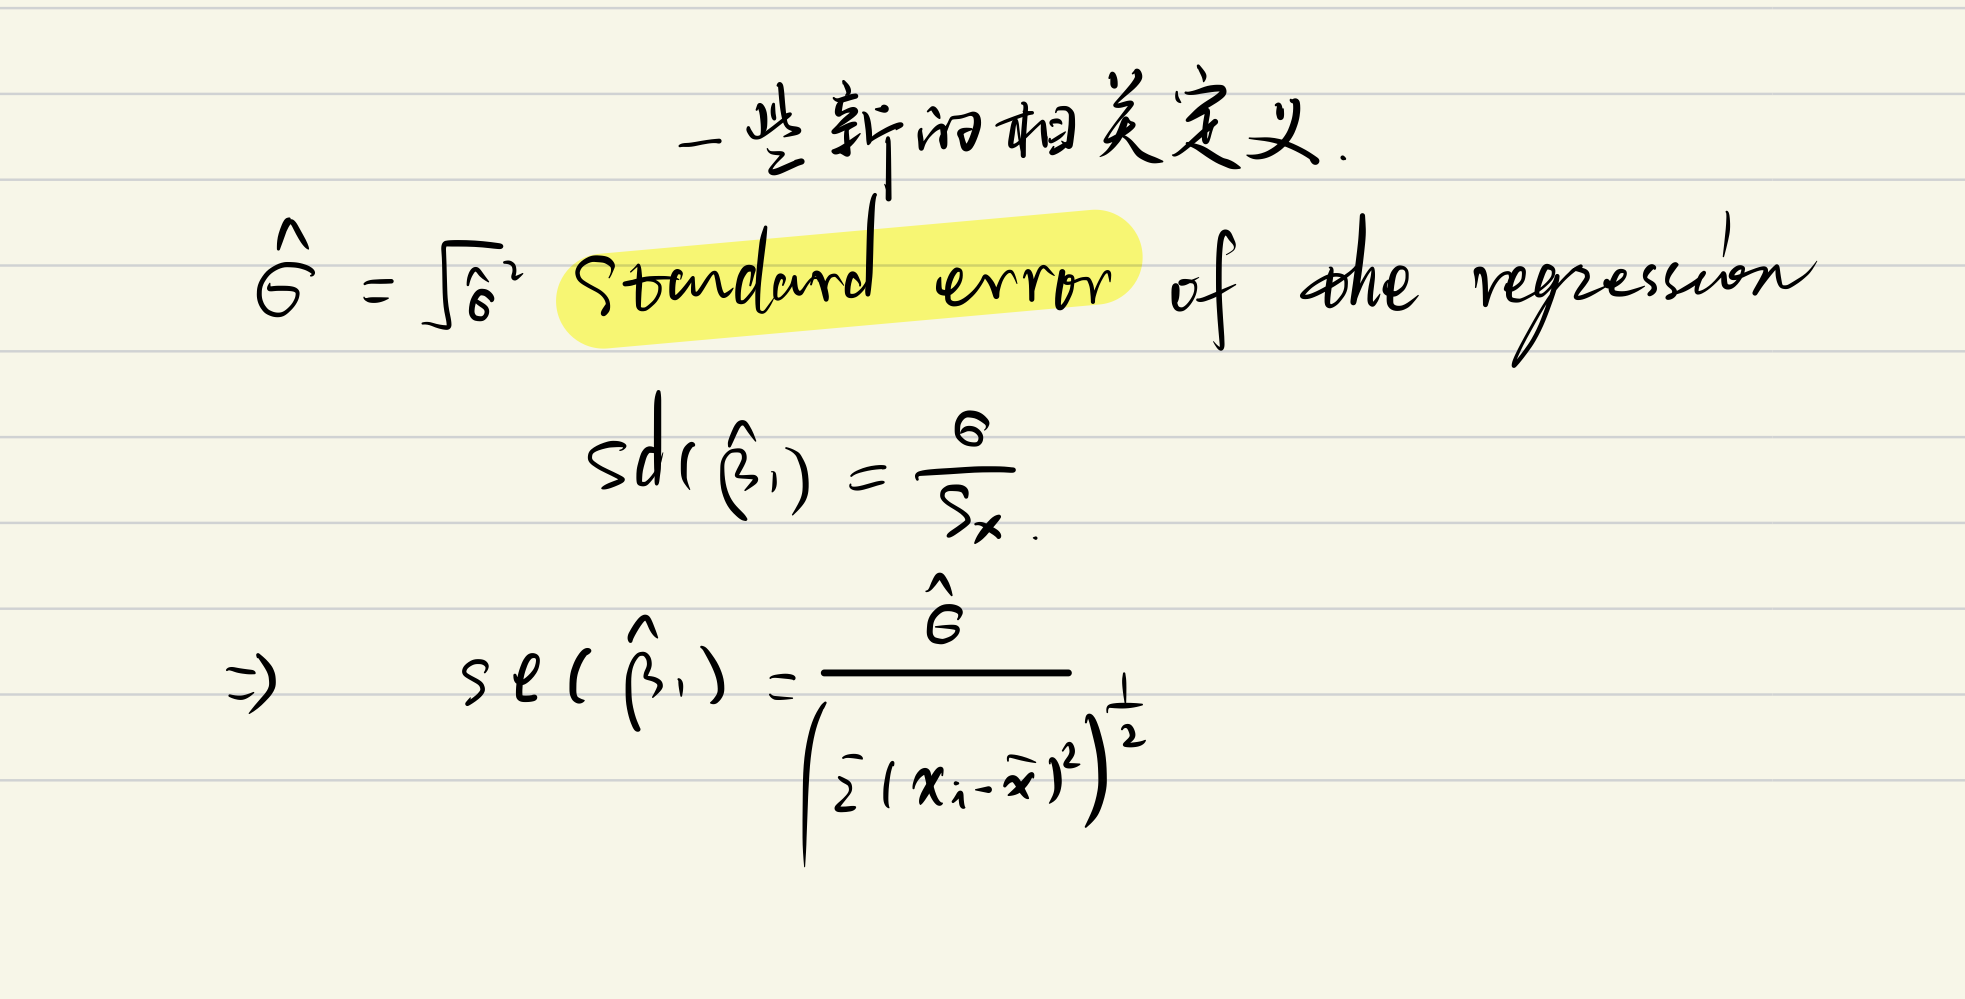 一些新的相关定义.
σ̂ = √σ̂² standard error of the regression
sd(β̂₁) = σ / Sₓ.
⇒ se(β̂₁) = σ̂ / (Σ(xᵢ - x̄)²)^(1/2)